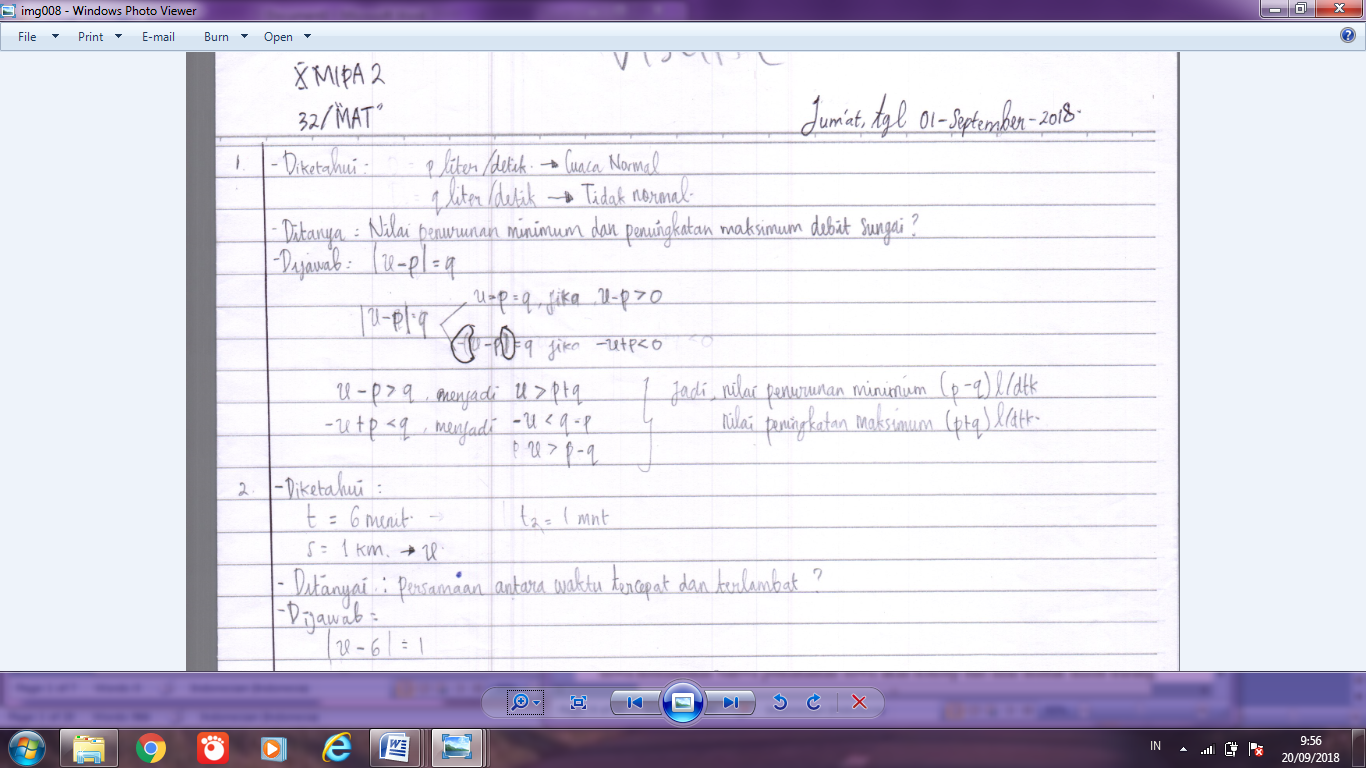 img008 - Windows Photo Viewer
File Print E-mail Burn Open
X MIPA 2
32/"MAT"
Jumat, tgl 01-September-2018.
1. - Diketahui : p liter/detik. → Cuaca Normal
q liter/detik → Tidak normal.
- Ditanya : Nilai penurunan minimum dan peningkatan maksimum debit sungai ?
- Dijawab : |u-p| = q
u-p = q, jika u-p > 0
|u-p| = q
-(u-p) = q jika -u+p < 0
u - p > q, menjadi u > p+q
Jadi, nilai penurunan minimum (p-q) l/dtk
-u+p < q, menjadi -u < q-p
nilai peningkatan maksimum (p+q) l/dtk.
u > p-q
2. - Diketahui :
t = 6 menit. t2 = 1 mnt
s = 1 km. → u.
- Ditanyai : persamaan antara waktu tercepat dan terlambat ?
- Dijawab =
|u - 6| = 1
IN
9:56
20/09/2018